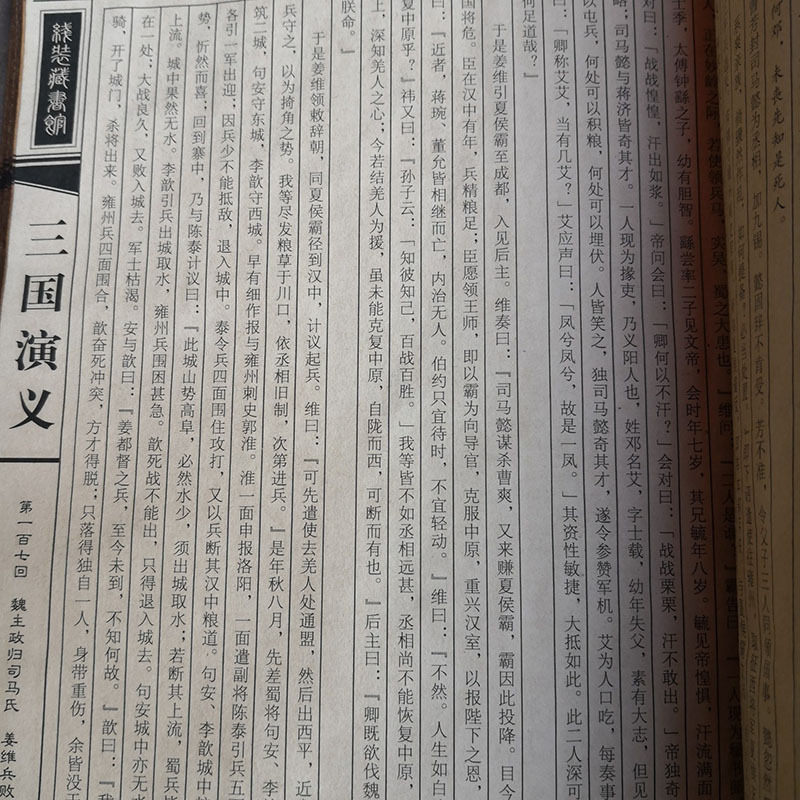 何邓，未丧先知是死人。
人，正在妙龄之际，若使领兵马，实吴、蜀之大患也。』维问：『二人是谁？』霸告曰：『一人现为秘书郎
士季，太傅钟繇之子，幼有胆智。繇尝率二子见文帝，会时年七岁，其兄毓年八岁。毓见帝惶惧，汗流满面
对曰：『战战惶惶，汗出如浆。』帝问会曰：『卿何以不汗？』会对曰：『战战栗栗，汗不敢出。』帝独奇
略；司马懿与蒋济皆奇其才。一人现为掾吏，乃义阳人也，姓邓名艾，字士载，幼年失父，素有大志，但见
以屯兵，何处可以积粮，何处可以埋伏。人皆笑之，独司马懿奇其才，遂令参赞军机。艾为人口吃，每奏事
曰：『卿称艾艾，当有几艾？』艾应声曰：『凤兮凤兮，故是一凤。』其资性敏捷，大抵如此。此二人深可
何足道哉？』
于是姜维引夏侯霸至成都，入见后主。维奏曰：『司马懿谋杀曹爽，又来赚夏侯霸，霸因此投降。目今
国将危。臣在汉中有年，兵精粮足；臣愿领王师，即以霸为向导官，克服中原，重兴汉室，以报陛下之恩，
曰：『近者，蒋琬、董允皆相继而亡，内治无人。伯约只宜待时，不宜轻动。』维曰：『不然。人生如白
复中原乎？』祎又曰：『孙子云：「知彼知己，百战百胜。」我等皆不如丞相远甚，丞相尚不能恢复中原，
上，深知羌人之心；今若结羌人为援，虽未能克复中原，自陇而西，可断而有也。』后主曰：『卿既欲伐魏
朕命。』
于是姜维领敕辞朝，同夏侯霸径到汉中，计议起兵。维曰：『可先遣使去羌人处通盟，然后出西平，近
兵守之，以为掎角之势。我等尽发粮草于川口，依丞相旧制，次第进兵。』是年秋八月，先差蜀将句安、李
筑二城，句安守东城，李歆守西城。早有细作报与雍州刺史郭淮。淮一面申报洛阳，一面遣副将陈泰引兵五
各引一军出迎；因兵少不能抵敌，退入城中。泰令兵四面围住攻打，又以兵断其汉中粮道。句安、李歆城中
势，忻然而喜；回到寨中，乃与陈泰计议曰：『此城山势高阜，必然水少，须出城取水；若断其上流，蜀兵
上流。城中果然无水。李歆引兵出城取水，雍州兵围困甚急。歆死战不能出，只得退入城去。句安城中亦无水
在一处；大战良久，又败入城去。军士枯渴。安与歆曰：『姜都督之兵，至今未到，不知何故。』歆曰：『我
骑，开了城门，杀将出来。雍州兵四面围合，歆奋死冲突，方才得脱；只落得独自一人，身带重伤，余皆没
线装藏书馆
三国演义
第一百七回 魏主政归司马氏 姜维兵败